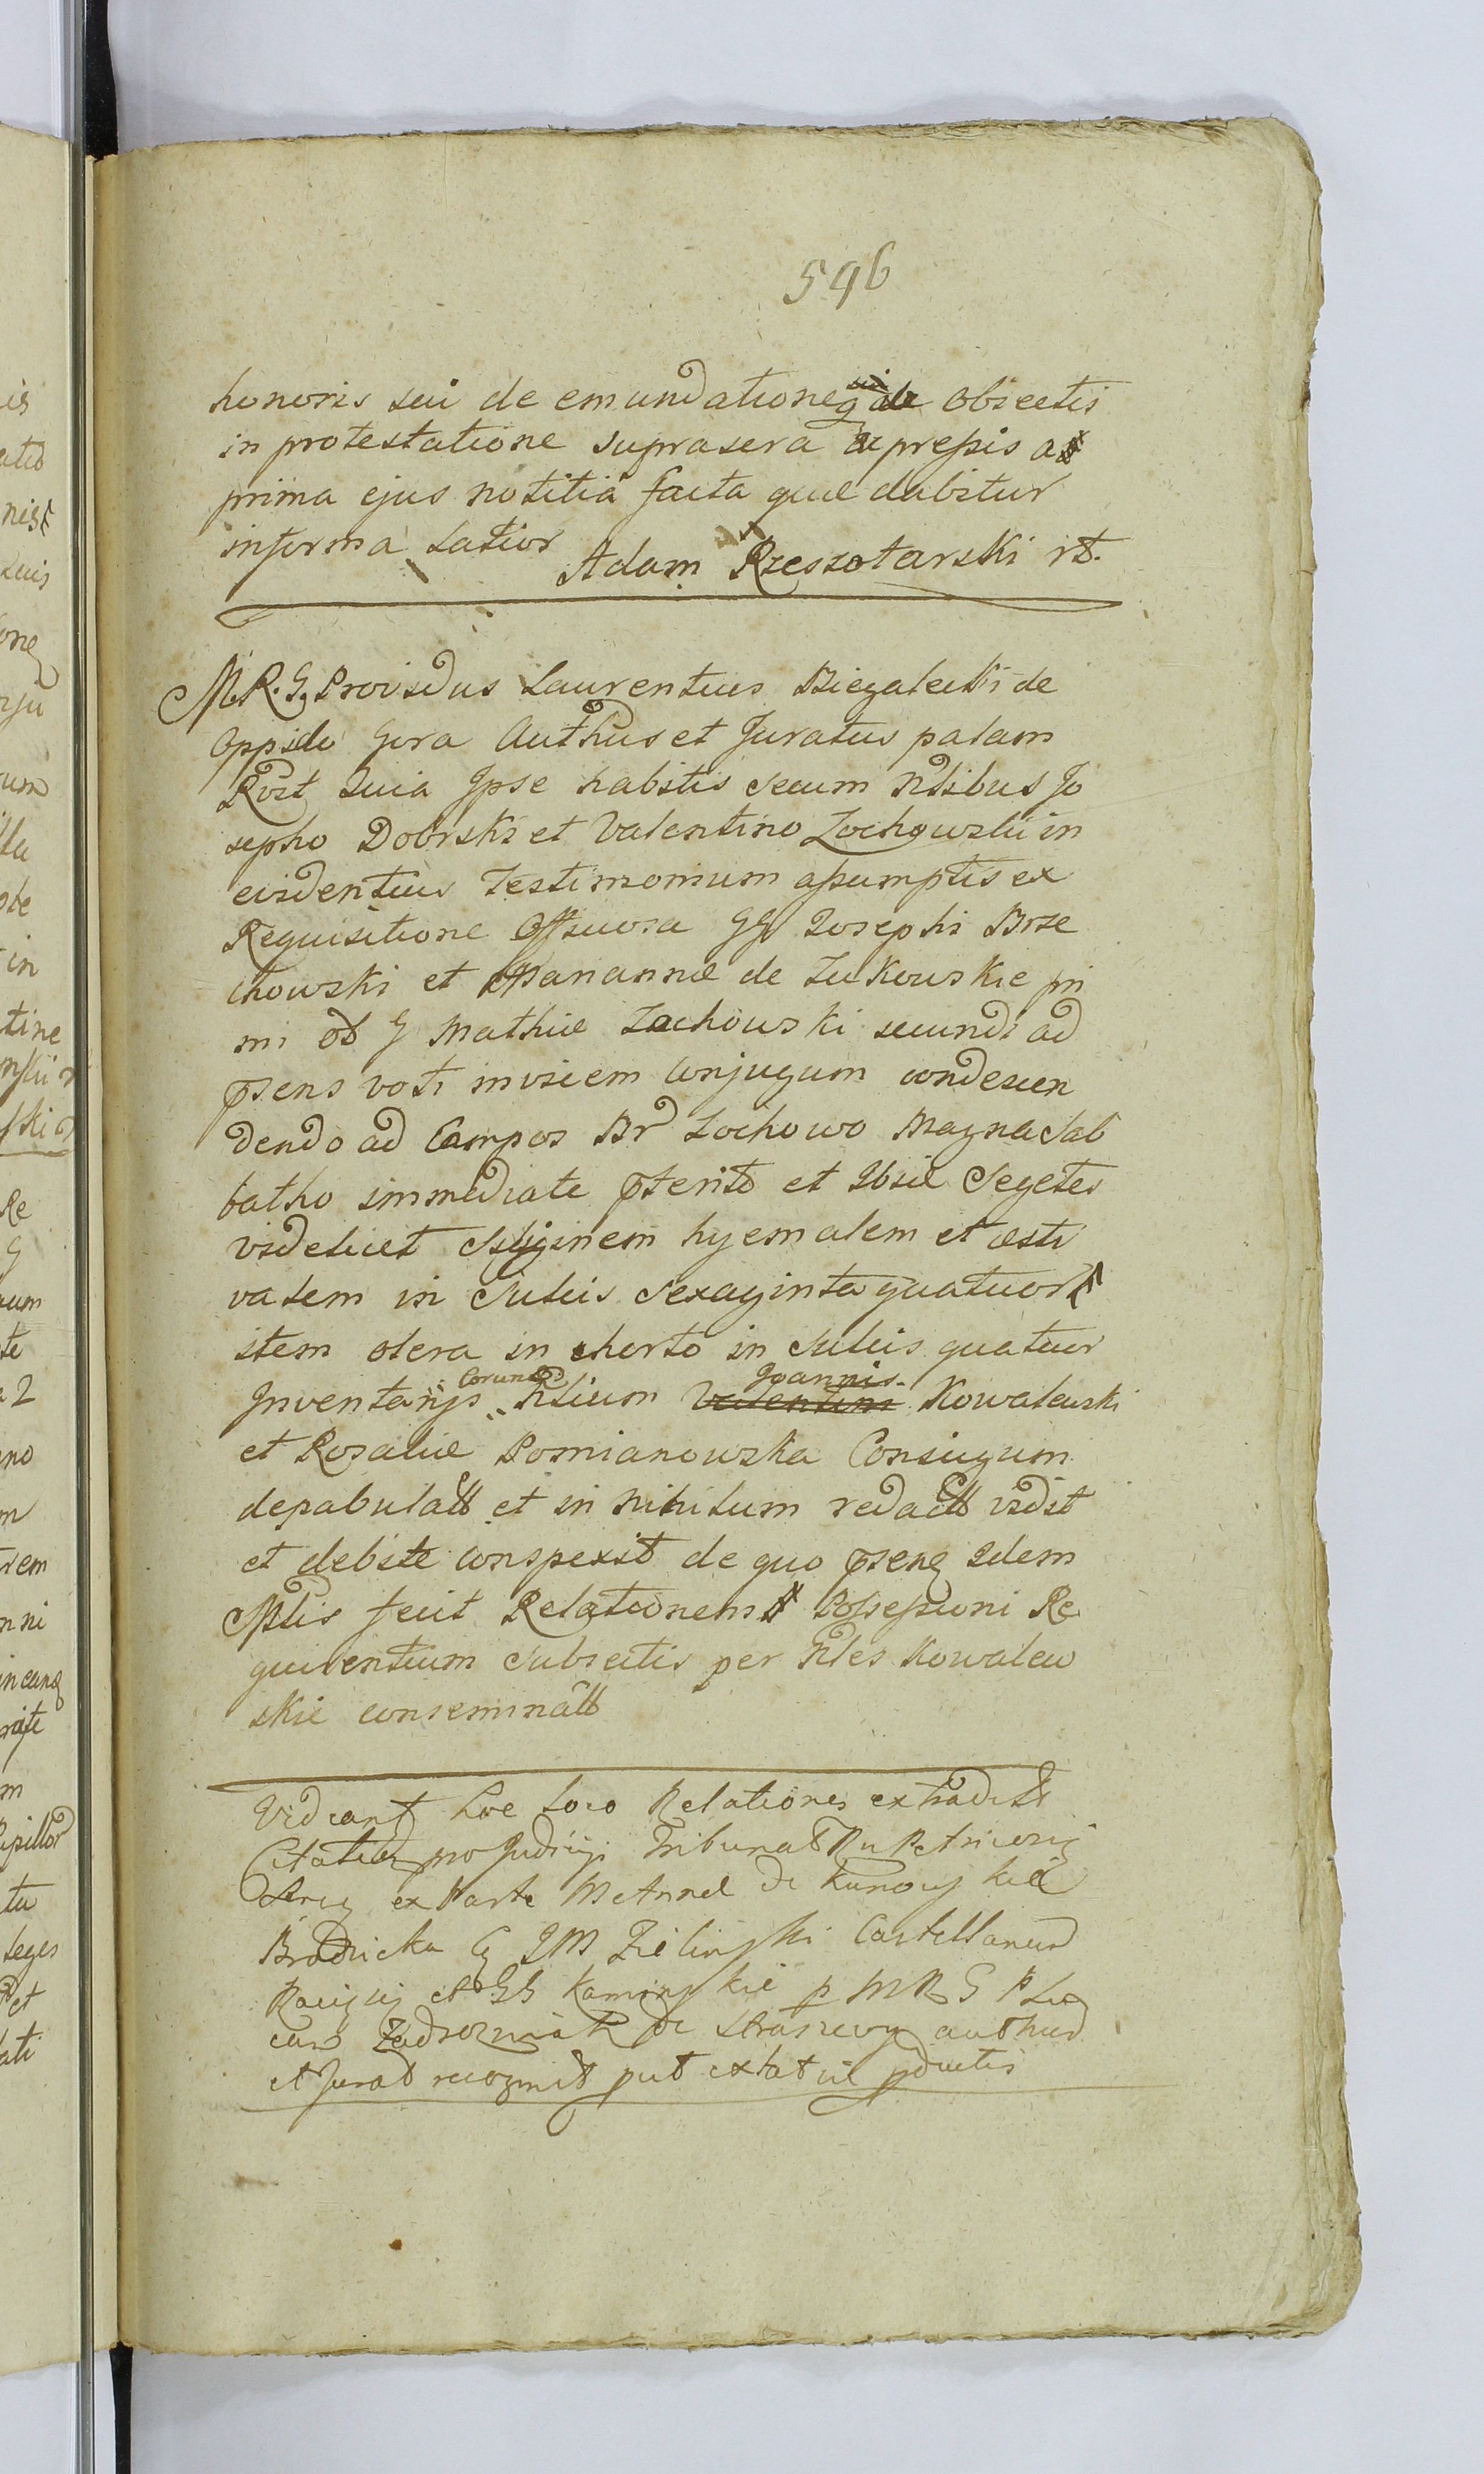 596
honoris sui de emundatione sibi de obiectis
in protestatione suprasera expressis a
prima ejus notitia facta quæ dabitur
in forma latior
Adam Rzeszotarski rt.
M. R. G. Providus Laurentius Biegalecki de
Oppido Gora Authus et Juratus palam
Rvit Quia Ipse habitis secum Nlibus Jo
sepho Dobrski et Valentino Zochowski in
evidentius Testimonium assumptis ex
Requisitione Offiuosa GG Josephi Brze
chowski et Mariannæ de Zukowskie pri
mi ot G Mathiæ Zochowski secundi ad
psens voti invicem Conjugum condescen
dendo ad Campos Br Zochowo Magna Sab
batho immediate pterito et Ibiæ Segetes
videlicet Siliginem hyemalem et æsti
valem in Sulcis Sexaginta quatuor
item olera in horto in Sulcis quatuor
Inventarijs Corund Nlium Valentini Joannis Kowalewski
et Rosaliæ Pomianowska Consiugum
depabulatt et in nihilum redactt vidit
et debite conspexit de quo psens Idem
Mtlis fecit Relationem Possessioni Re
quirentium Subiectis per Nles Kowalew
skie conseminatt
Videant hoc loco Relationes extradit
Citat pro Judicijs Tribunat Rn Petricovi
ex Parte M Annæ de Kunowskie
G JM Zielinski Castellaneus
et GG Kaminskie p M R G P Lu
cam de authus
et Jurat recognit put extat